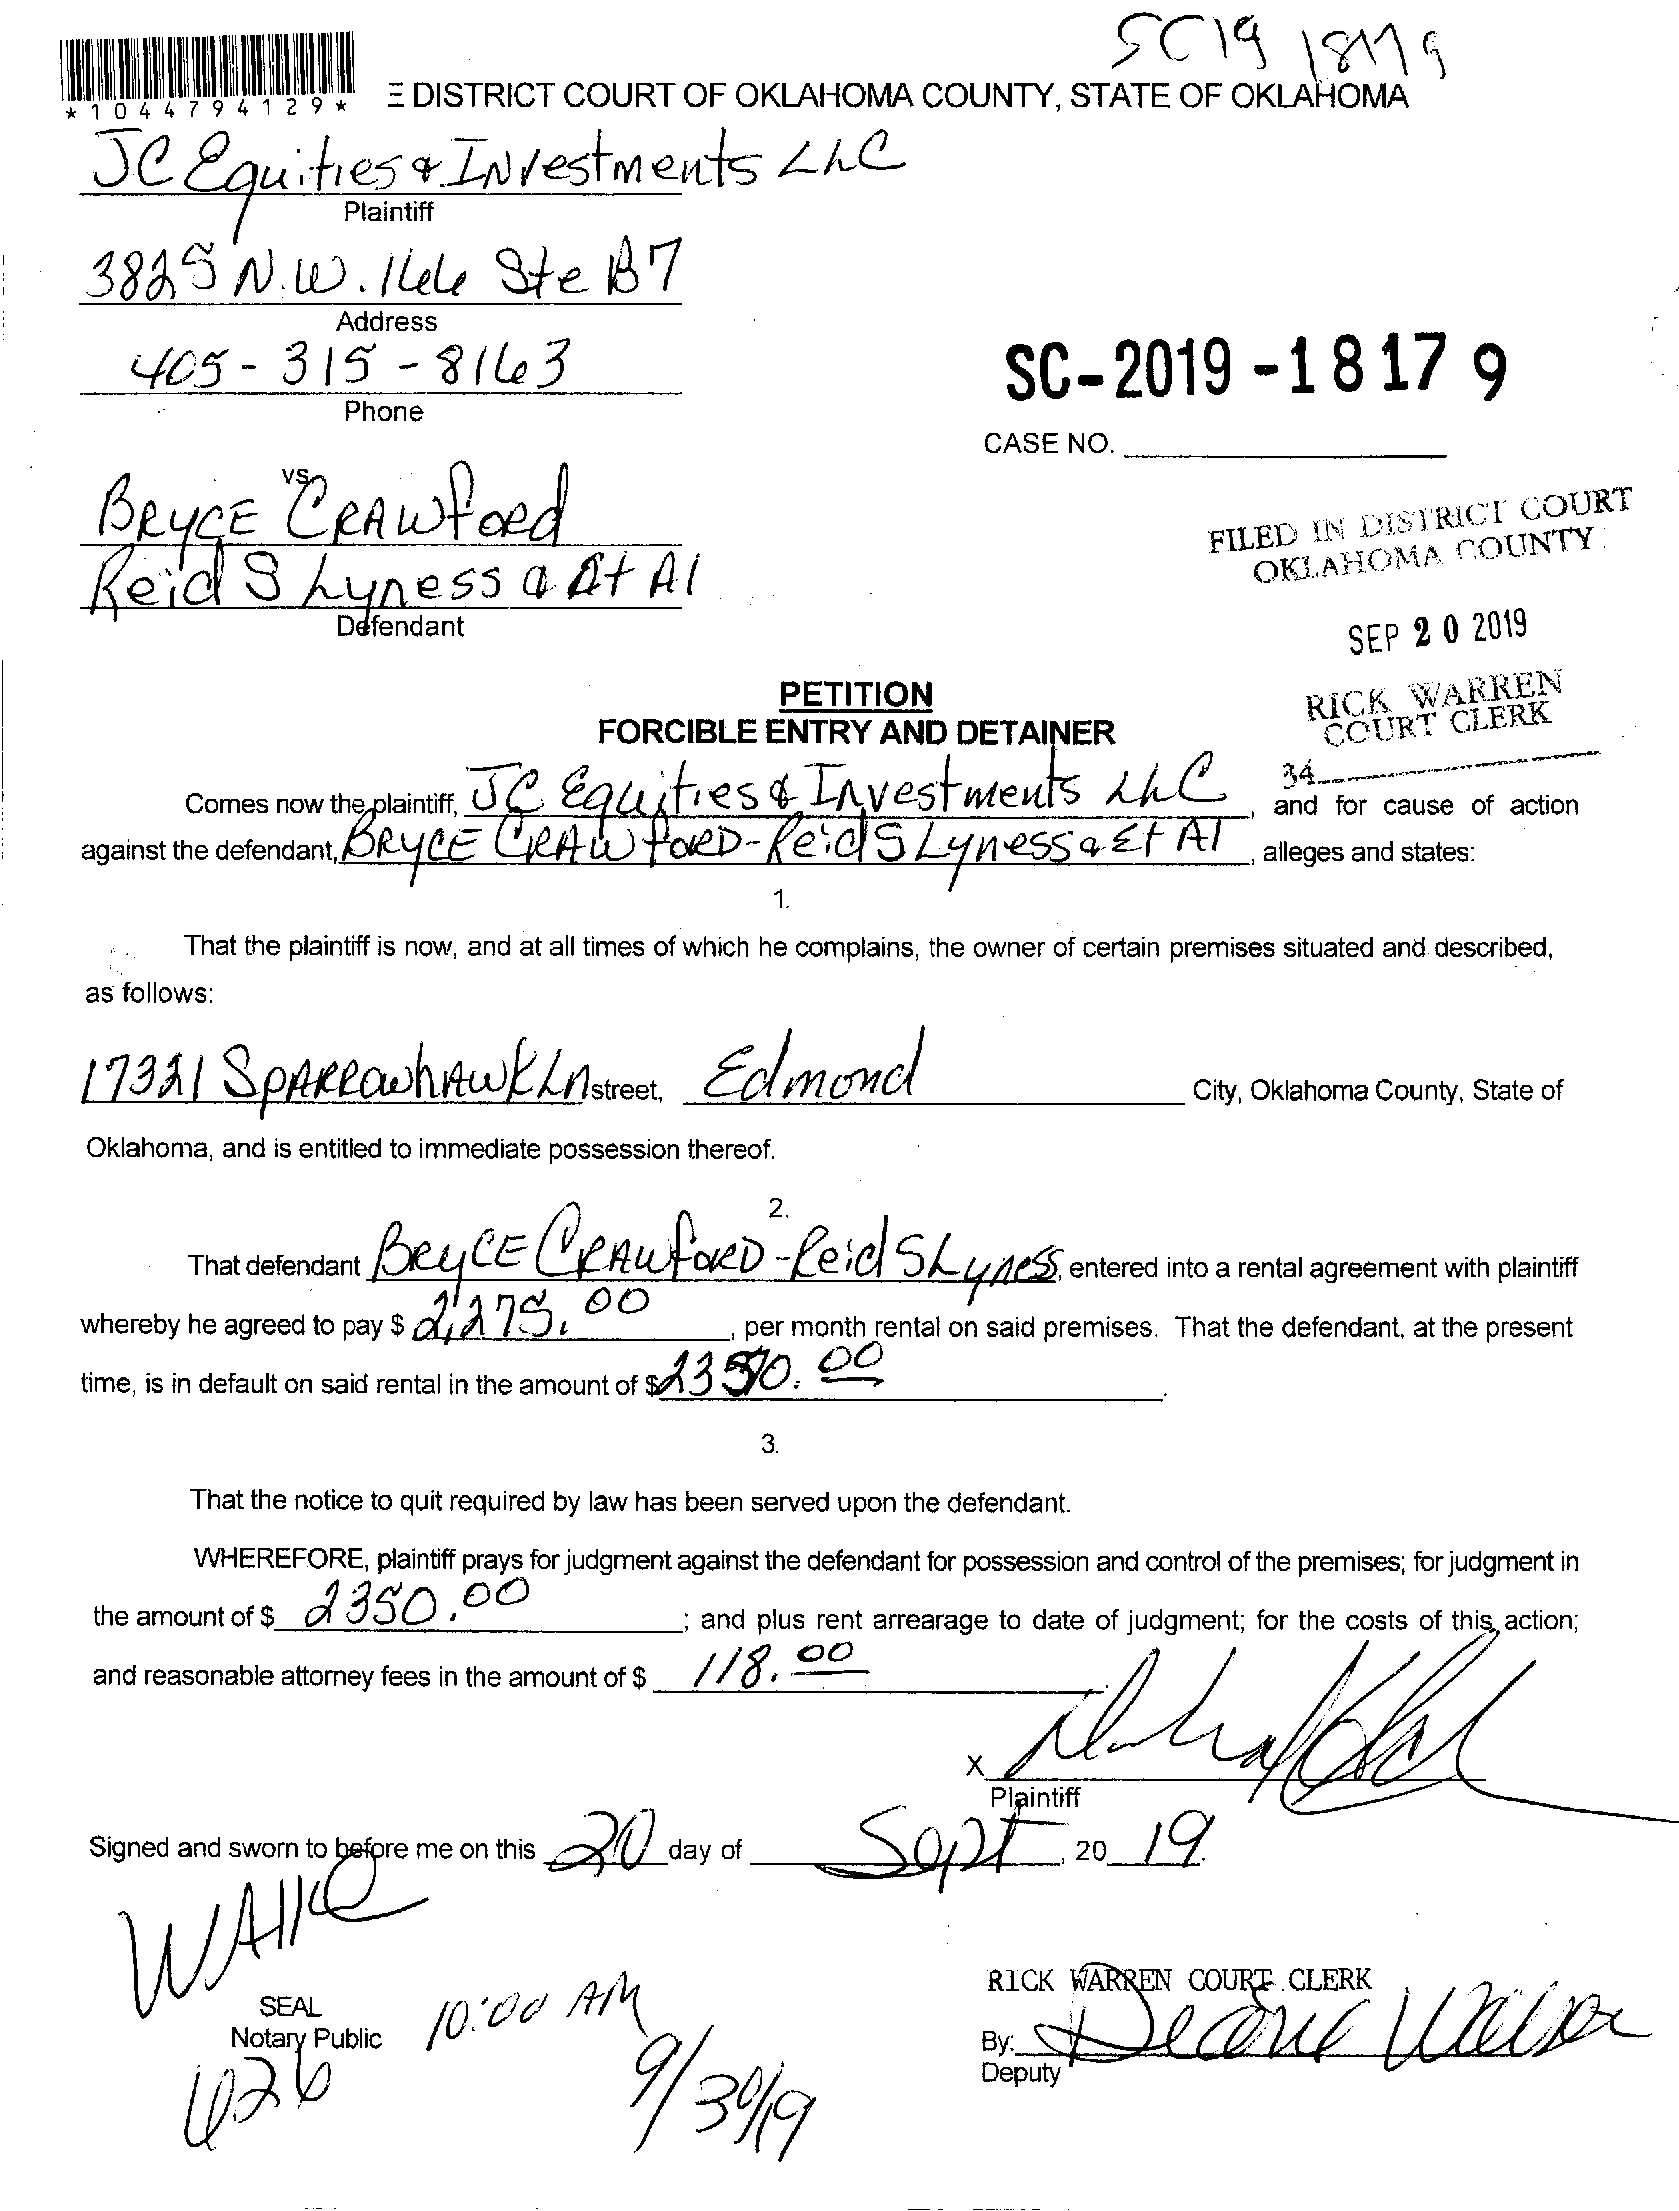 SC19 18179
*1044794129*
E DISTRICT COURT OF OKLAHOMA COUNTY, STATE OF OKLAHOMA
JC Equities & Investments LLC
Plaintiff
3825 N.W. 166 Ste B7
Address
405-315-8163
Phone
SC-2019-18179
CASE NO.
vs
BRYCE CRAWFORD
Reid S Lyness & Et Al
Defendant
FILED IN DISTRICT COURT
OKLAHOMA COUNTY
SEP 20 2019
RICK WARREN
COURT CLERK
34
PETITION
FORCIBLE ENTRY AND DETAINER
Comes now the plaintiff, JC Equities & Investments LLC, and for cause of action
against the defendant, BRYCE CRAWFORD-Reid S Lyness & Et Al, alleges and states:
1.
That the plaintiff is now, and at all times of which he complains, the owner of certain premises situated and described,
as follows:
17321 SPARROWHAWK Ln street, Edmond City, Oklahoma County, State of
Oklahoma, and is entitled to immediate possession thereof.
2.
That defendant BRYCE CRAWFORD-Reid S Lyness, entered into a rental agreement with plaintiff
whereby he agreed to pay $ 2,275.00, per month rental on said premises. That the defendant, at the present
time, is in default on said rental in the amount of $2350.00.
3.
That the notice to quit required by law has been served upon the defendant.
WHEREFORE, plaintiff prays for judgment against the defendant for possession and control of the premises; for judgment in
the amount of $ 2350.00; and plus rent arrearage to date of judgment; for the costs of this action;
and reasonable attorney fees in the amount of $ 118.00.
X
Plaintiff
Signed and sworn to before me on this 20 day of Sept, 2019.
SEAL
Notary Public
10:00 AM
626
9/30/19
RICK WARREN COURT CLERK
By:
Deputy